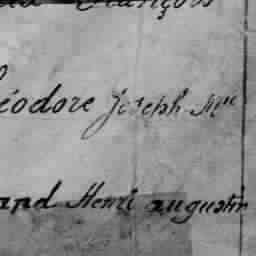 François
éodore Joseph Mie
and Henri augustin